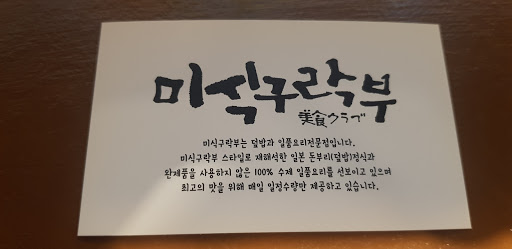 미식구락부
美食クラブ
미식구락부는 덮밥과 일품요리전문점입니다.
미식구락부 스타일로 재해석한 일본 돈부리(덮밥)정식과
완제품을 사용하지 않은 100% 수제 일품요리를 선보이고 있으며
최고의 맛을 위해 매일 일정수량만 제공하고 있습니다.